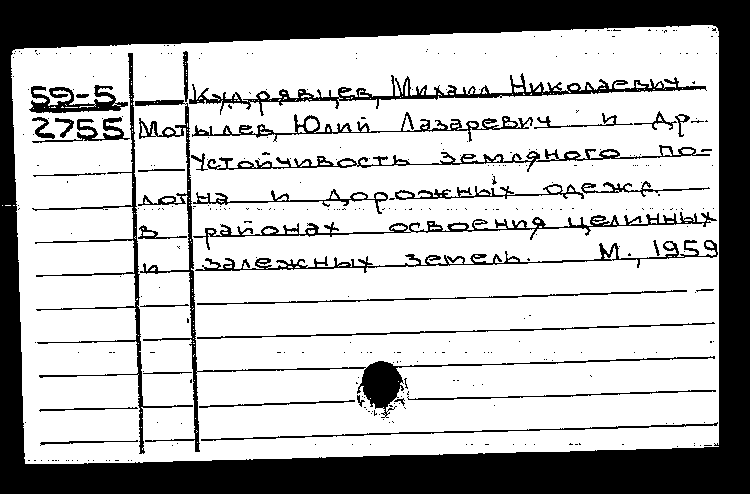 59-5 Кудрявцев, Михаил Николаевич.
2755 Мотылев, Юлий Лазаревич и др.
Устойчивость земляного по-
лотна и дорожных одежд
в районах освоения целинных
и залежных земель. М., 1959